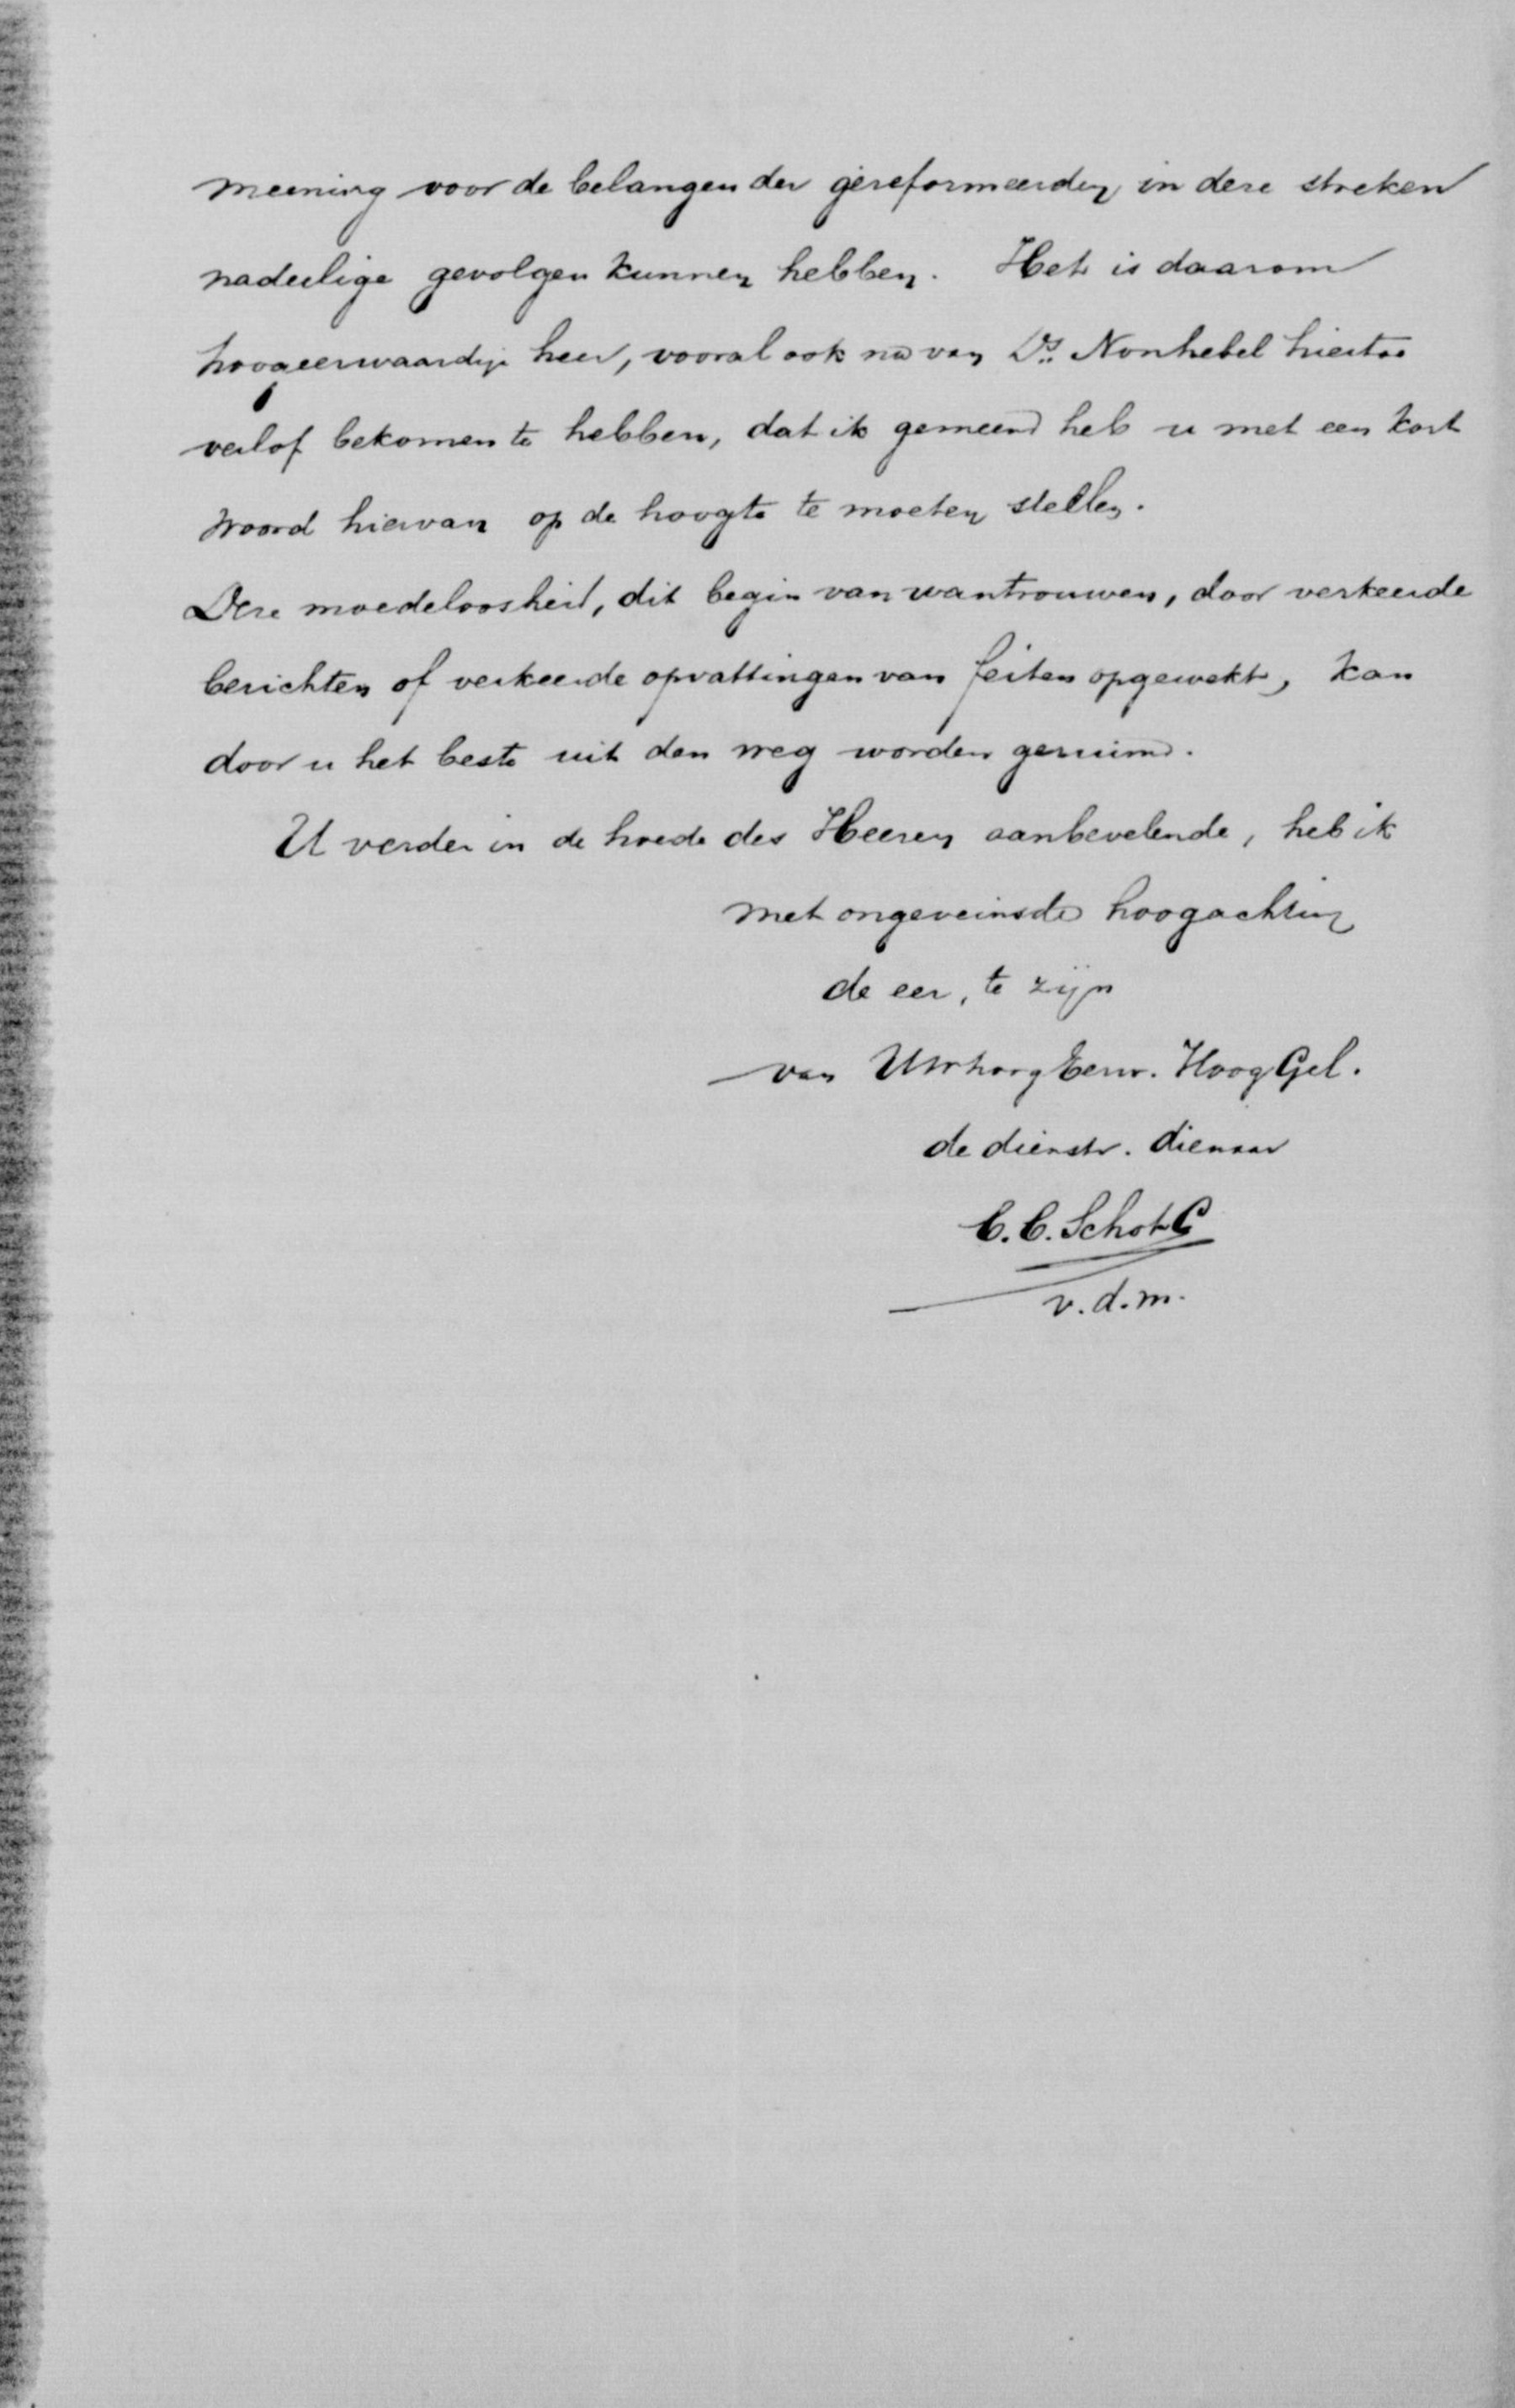 meening voor de belangen der gereformeerden in deze streken
nadeelige gevolgen kunnen hebben. Het is daarom
hoogeerwaardige heer, vooral ook na van Ds. Nonhebel hiertoe
verlof bekomen te hebben, dat ik gemeend heb u met een kort
woord hiervan op de hoogte te moeten stellen.
Deze moedeloosheid, dit begin van wantrouwen, door verkeerde
berichten of verkeerde opvattingen van feiten opgewekt, kan
door u het beste uit den weg worden geruimd.
U verder in de hoede des Heeren aanbevelende, heb ik
met ongeveinsde hoogachting
de eer, te zijn
van UwhoogEerw. HoogGel.
de dienstv. dienaar
C.C. Schot
v.d.m.